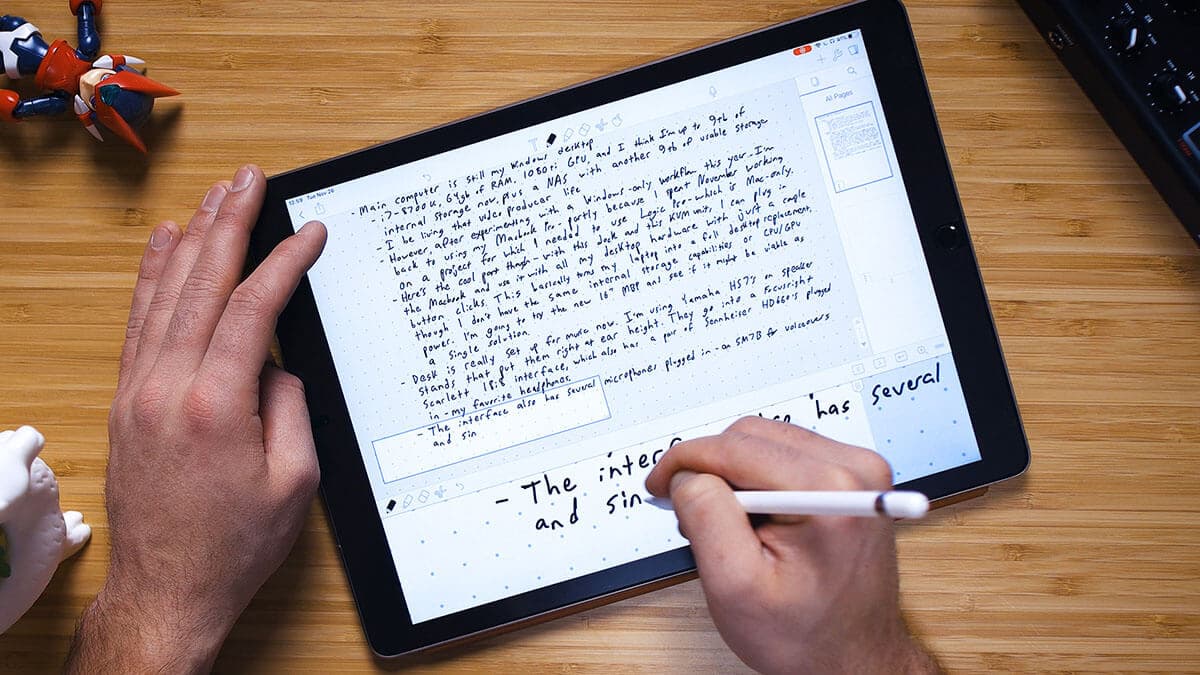 12:59 Tue Nov 26
91%
All Pages
- Main computer is still my Windows desktop
- i7-8700K, 64gb of RAM, 1080ti GPU, and I think I'm up to 9tb of
internal storage now, plus a NAS with another 9tb of usable storage
- I be living that video producer life
However, after experimenting with a Windows-only workflow this year, I'm
back to using my Macbook Pro - partly because I spent November working
on a project for which I needed to use Logic Pro - which is Mac-only.
- Here's the cool part though - with this dock and this KVM unit, I can plug in
the Macbook and use it with all my desktop hardware with just a couple
button clicks. This basically turns my laptop into a full desktop replacement,
though I don't have the same internal storage capabilities or CPU/GPU
power. I'm going to try the new 16" MBP and see if it might be viable as
a single solution.
- Desk is really set up for music now. I'm using Yamaha HS7's on speaker
stands that put them right at ear height. They go into a Focusright
Scarlett 18i8 interface, which also has a pair of Sennheiser HD660-s plugged
in - my favorite headphones.
- The interface also has several microphones plugged in - an SM7B for voiceovers
and sin
- The interf has several
and sin